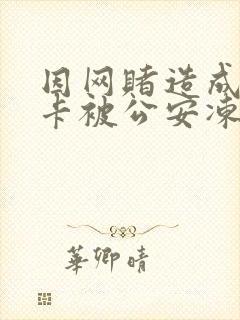 因网赌造成
卡被公安冻
華卿晴